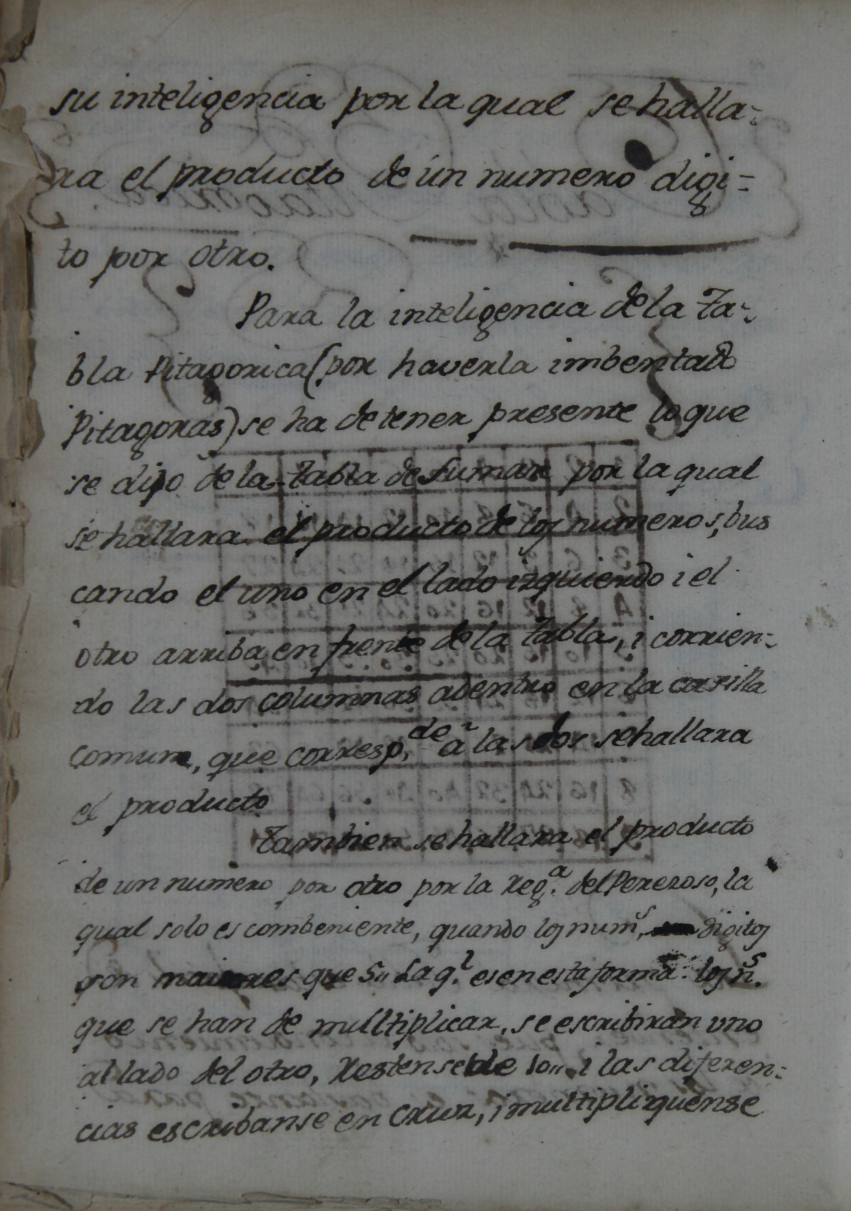 su inteligencia por la qual se halla=
ra el producto de ùn numero digi=
to por otro.
Para la inteligencia de la Ta=
bla Pitagorica (por haverla imbentado
Pitagoras) se ha de tener presente lo que
se dijo de la Tabla de Sumar por la qual
se hallara el producto de los numeros, bus
cando el uno en el lado izquierdo i el
otro arriba en frente de la Tabla, i corrien=
do las dos columnas adentro en la casilla
comun, que corresp.de à las dos se hallara
el producto
Tambien se hallara el producto
de un numero por otro por la Reg.a del Perezoso, la
qual solo es combeniente, quando los num.s digitos
son maiores que 5,, La q.l es en esta forma: los n.s
que se han de multiplicar, se escribiran uno
al lado del otro, Restense de 10,, i las diferen=
cias escribanse en Cruz, i multipliquense